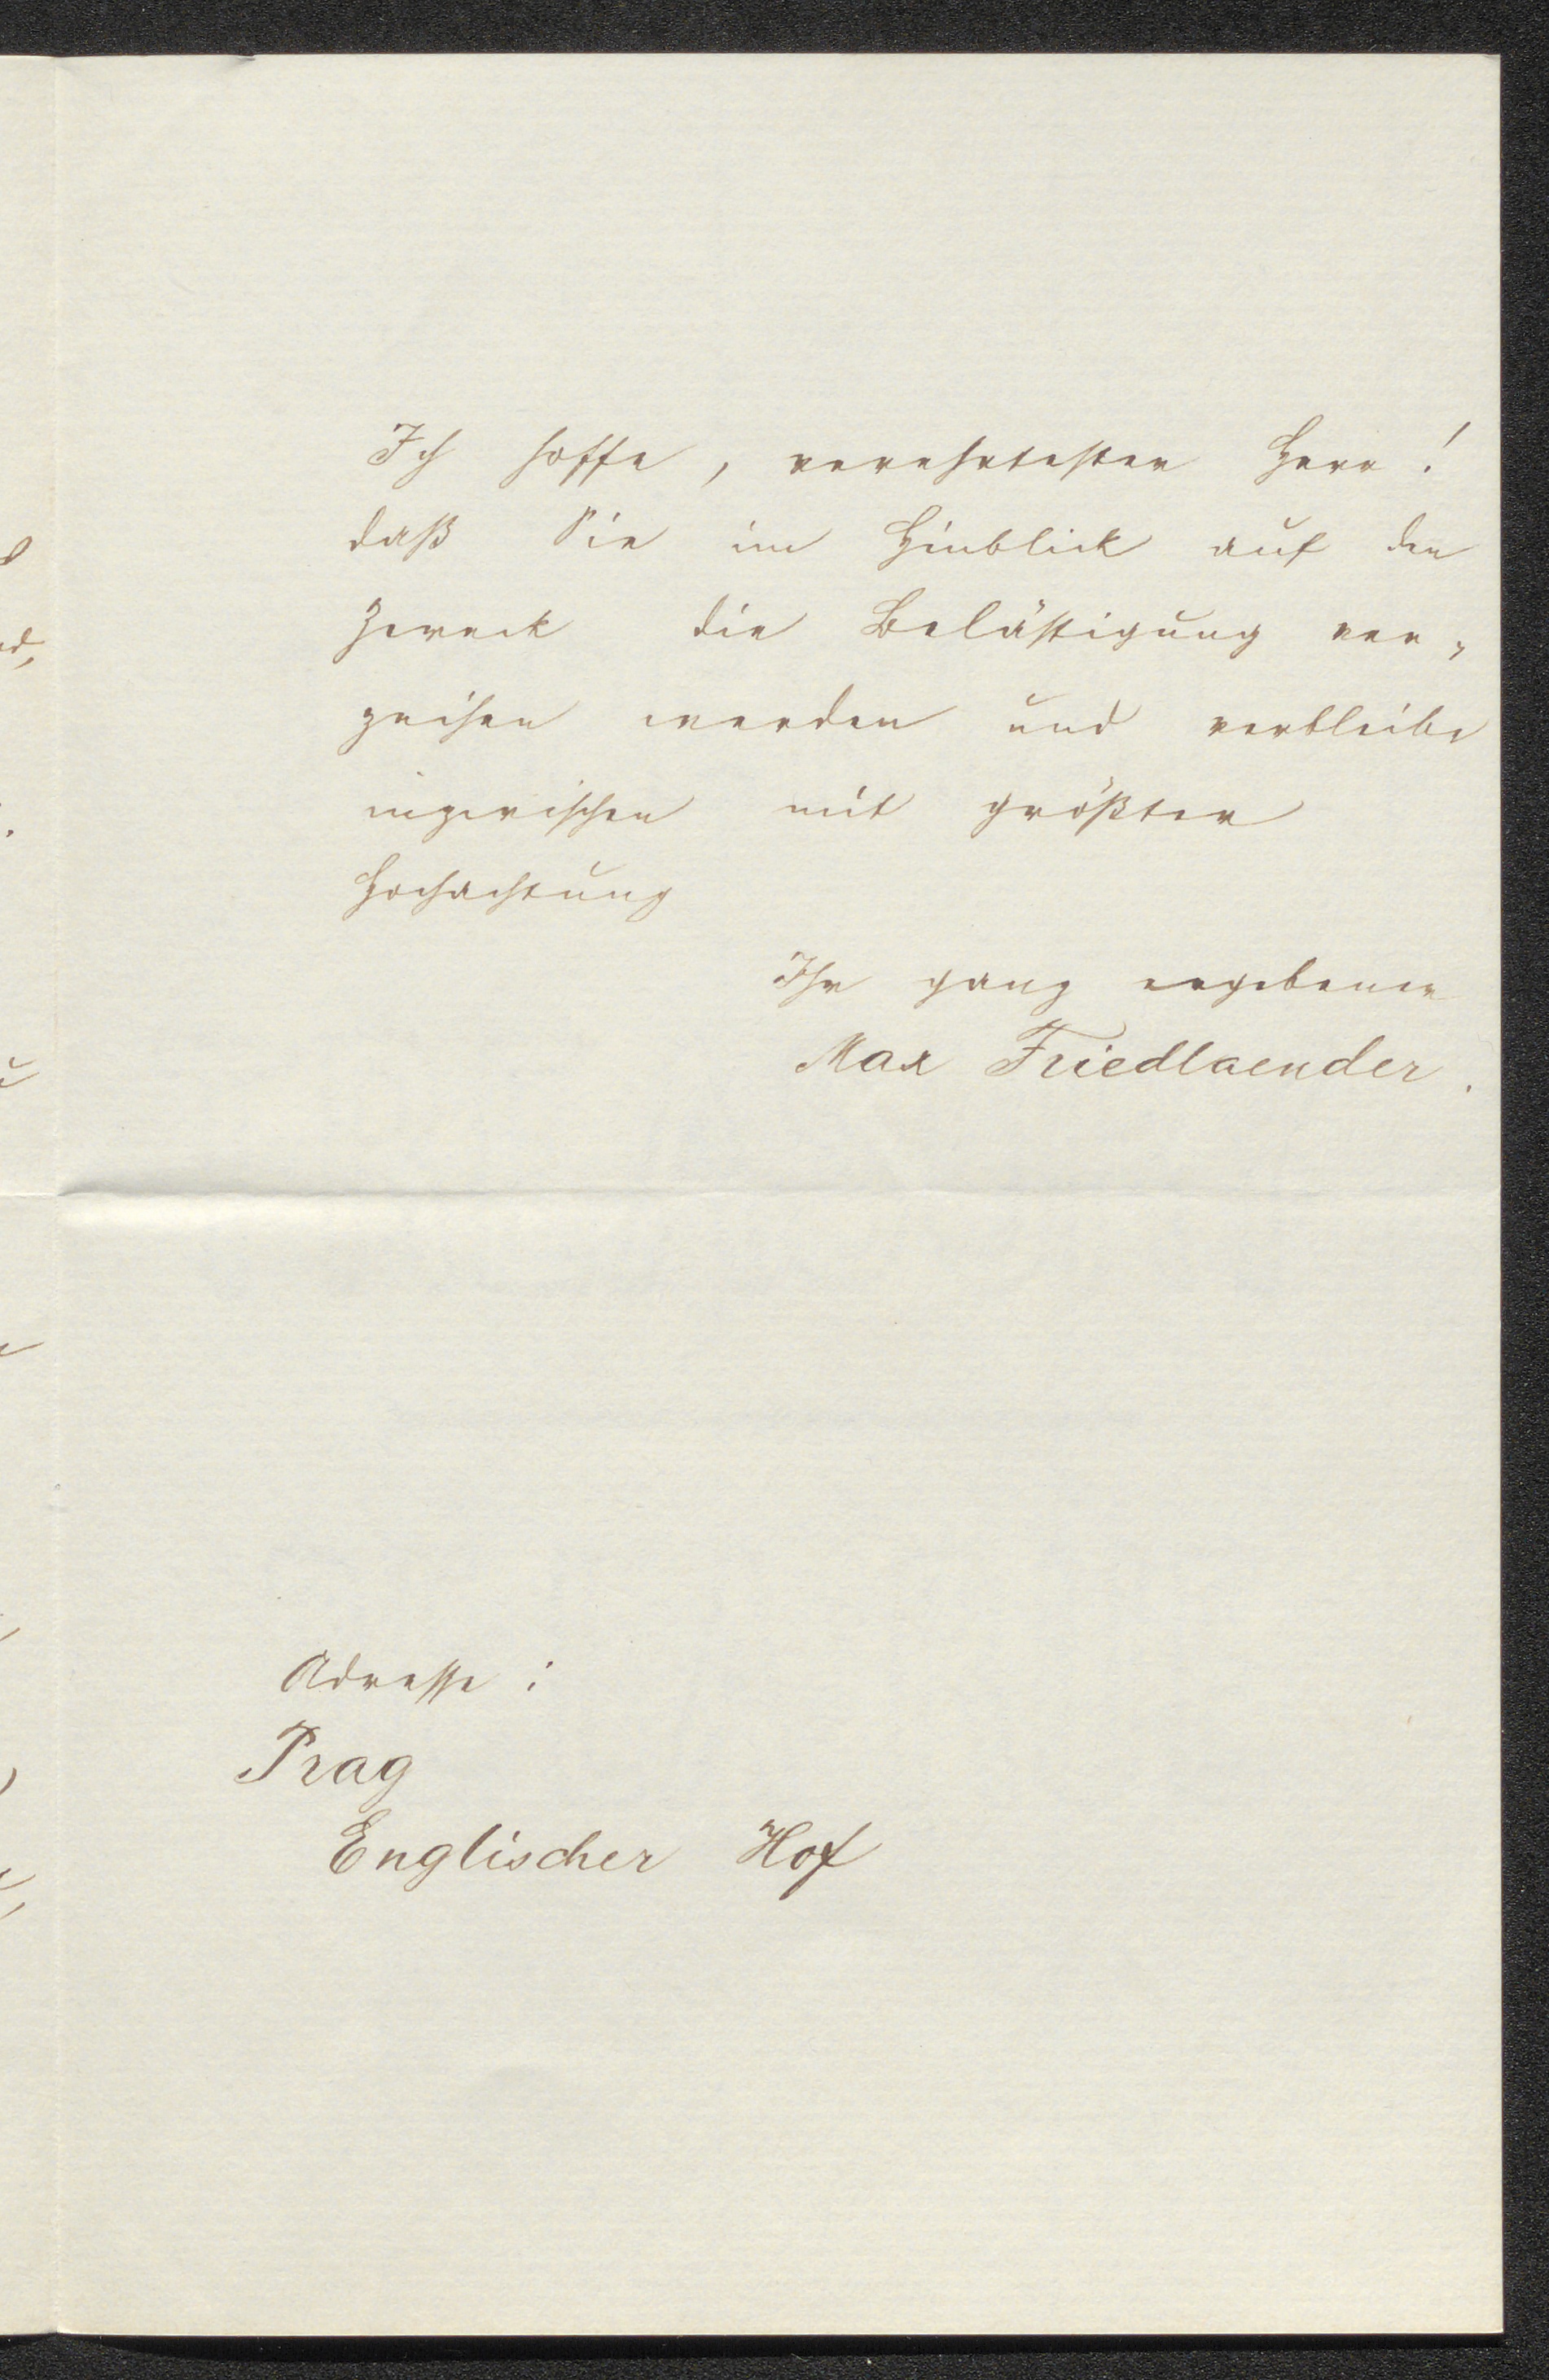 Ich hoffe, verehrtester Herr!
daß Sie im Hinblick auf den
Zweck die Belästigung ver-
zeihen werden und verbleibe
inzwischen mit größter
Hochachtung
Ihr ganz ergebener
Max Friedlaender.
Adresse:
Prag
Englischer Hof